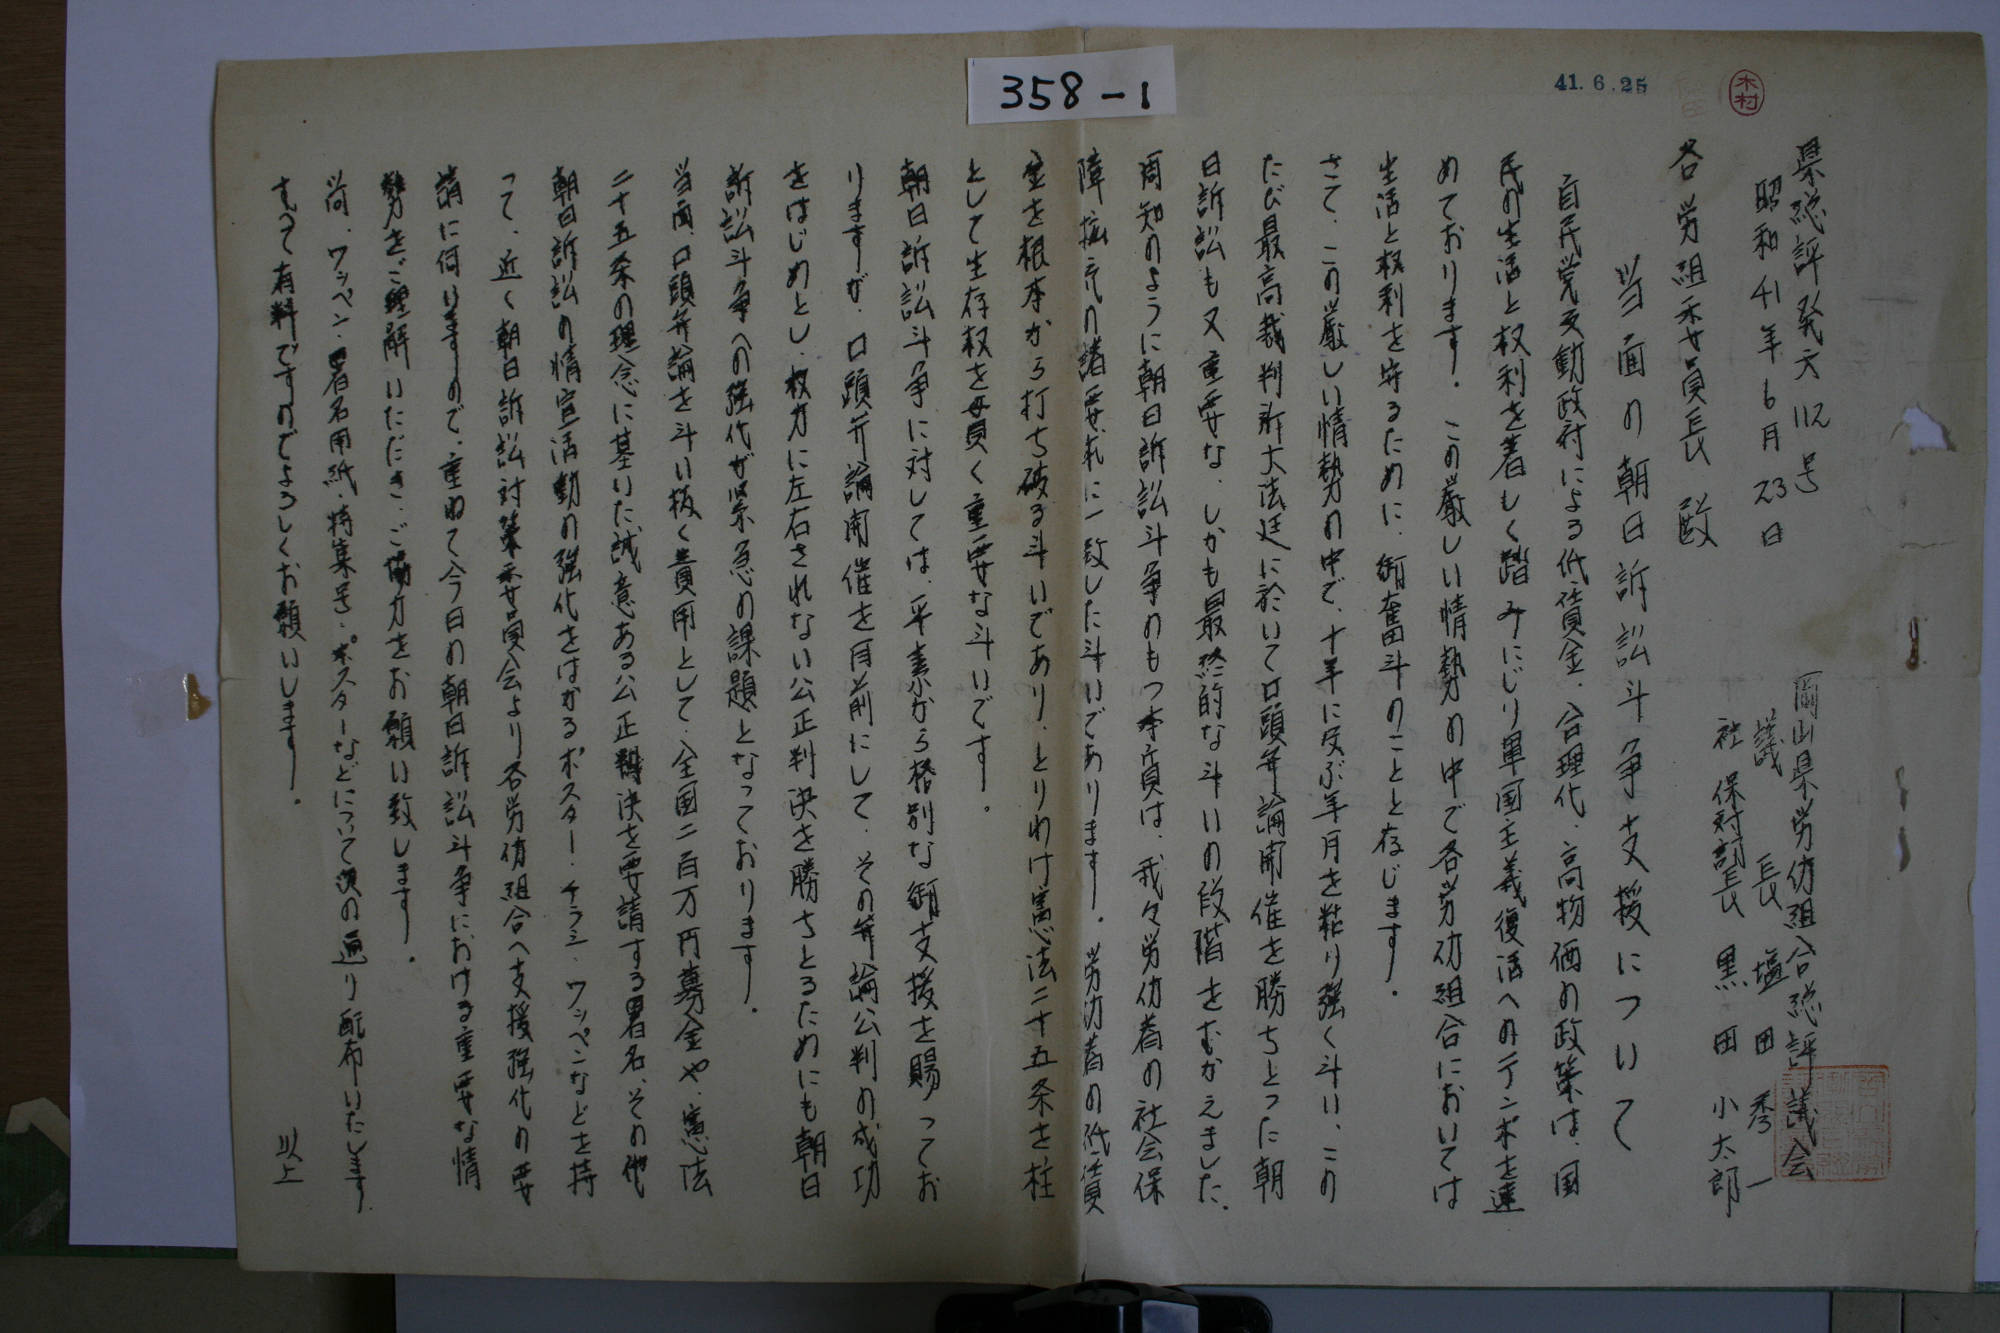 358-1
41.6.25
木村
県総評発文112号
昭和41年6月23日
岡山県労仂組合総評議会
議長 塩田秀一
社保対部長 黒田小太郎
各労組委員長殿
当面の朝日訴訟斗争支援について
自民党反動政府による低賃金、合理化、高物価の政策は、国
民の生活と权利を著もく踏みにじり軍国主義復活へのテンポを速
めております。この厳しい情勢の中で各労仂組合においては
生活と权利を守るために、御奮斗のことと存じます。
さて、この厳しい情勢の中で、十年に及ぶ年月を粘り強く斗い、この
たび最高裁判所大法廷に於いて口頭弁論開催を勝ちとった朝
日訴訟も又重要な、しかも最終的な斗いの段階をむかえました。
周知のように朝日訴訟斗争のもつ本質は、我々労仂者の社会保
障拡充の諸要求に一致した斗いであります。労仂者の低賃
金を根本から打ち破る斗いであり、とりわけ憲法二十五条を柱
として生存权を毋貫く重要な斗いです。
朝日訴訟斗争に対しては、平素から格別な御支援を賜ってお
りますが、口頭弁論開催を目前にして、その弁論公判の成功
をはじめとし、权力に左右されない公正判決を勝ちとるためにも朝日
訴訟斗争への強化が緊急の課題となっております。
当面、口頭弁論を斗い抜く費用として、全国二百万円募金や、憲法
二十五条の理念に基いた誠意ある公正判決を要請する署名、その他
朝日訴訟の情宣活動の強化をはかるポスター、チラシ、ワッペンなどを持
って、近く朝日訴訟対策委員会より各労仂組合へ支援強化の要
請に伺いますので、重ねて今日の朝日訴訟斗争における重要な情
勢をご理解いただき、ご協力をお願い致します。
尚、ワッペン・署名用紙・特集号・ポスターなどについて次の通り配布いたします
すべて有料ですのでよろしくお願いします。
以上